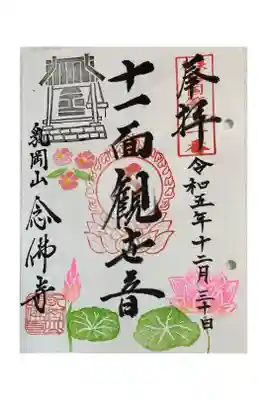 奉拝
令和五年十二月三十日
十一面觀世音
岡山
念佛寺